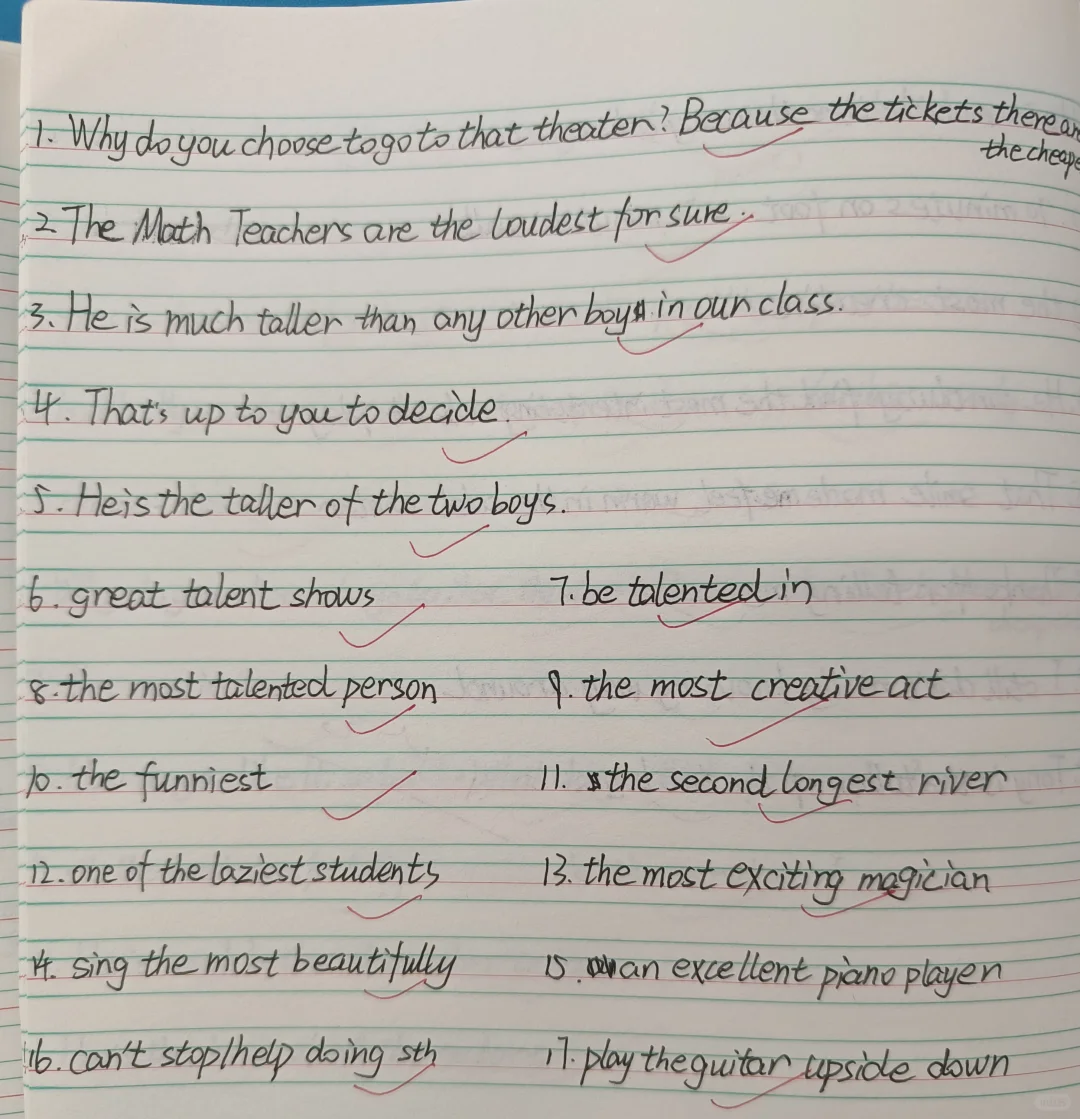 1. Why do you choose to go to that theater? Because the tickets there
the
2 The Math Teachers are the loudest for sure.
3. He is much taller than any other boy in our class.
4. That's up to you to decide.
5. He is the taller of the two boys.
6. great talent shows 7. be talented in
8. the most talented person 9. the most creative act
10. the funniest 11. the second longest river
12. one of the laziest students 13. the most exciting magician
14. sing the most beautifully 15. an excellent piano player
16. can't stop/help doing sth 17. play the guitar upside down